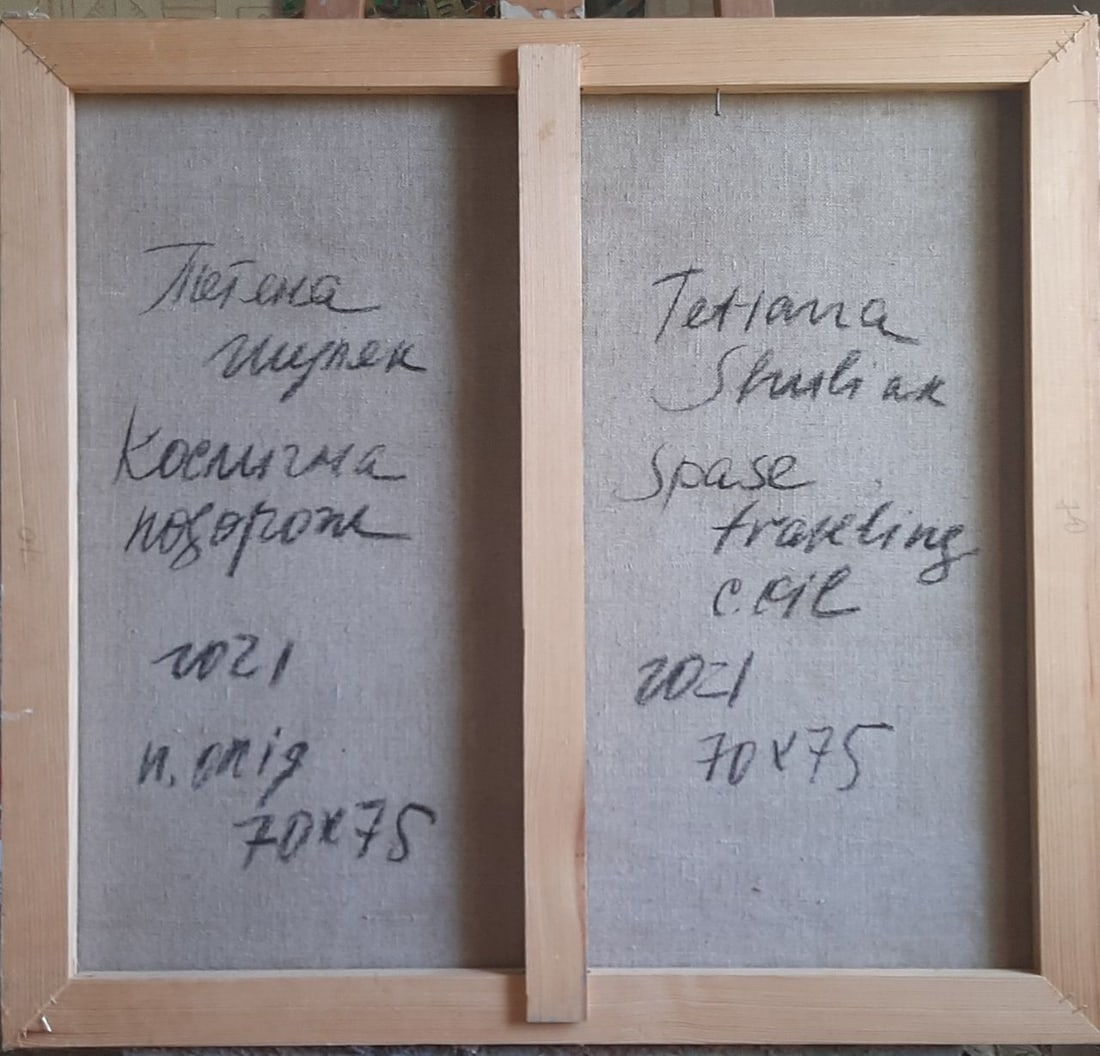 Тетяна
Шуляк
Космічна
подорож
2021
п. олія
70x75
Tetiana
Shuliak
Spase
traveling
c. oil
2021
70x75